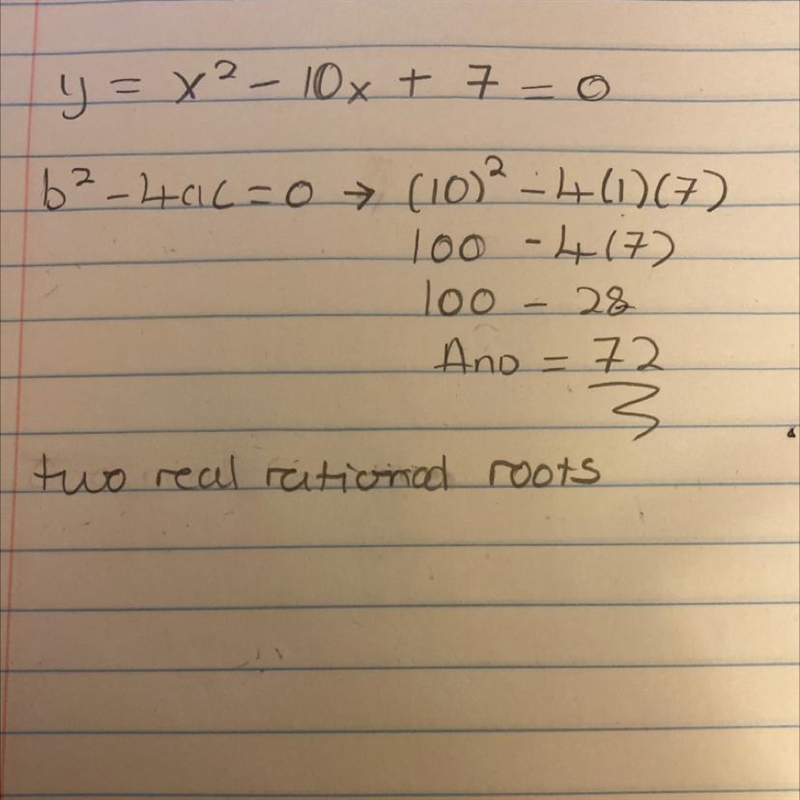 y = x² - 10x + 7 = 0
b² - 4ac = 0 → (10)² - 4(1)(7)
100 - 4(7)
100 - 28
Ano = 72
two real rational roots